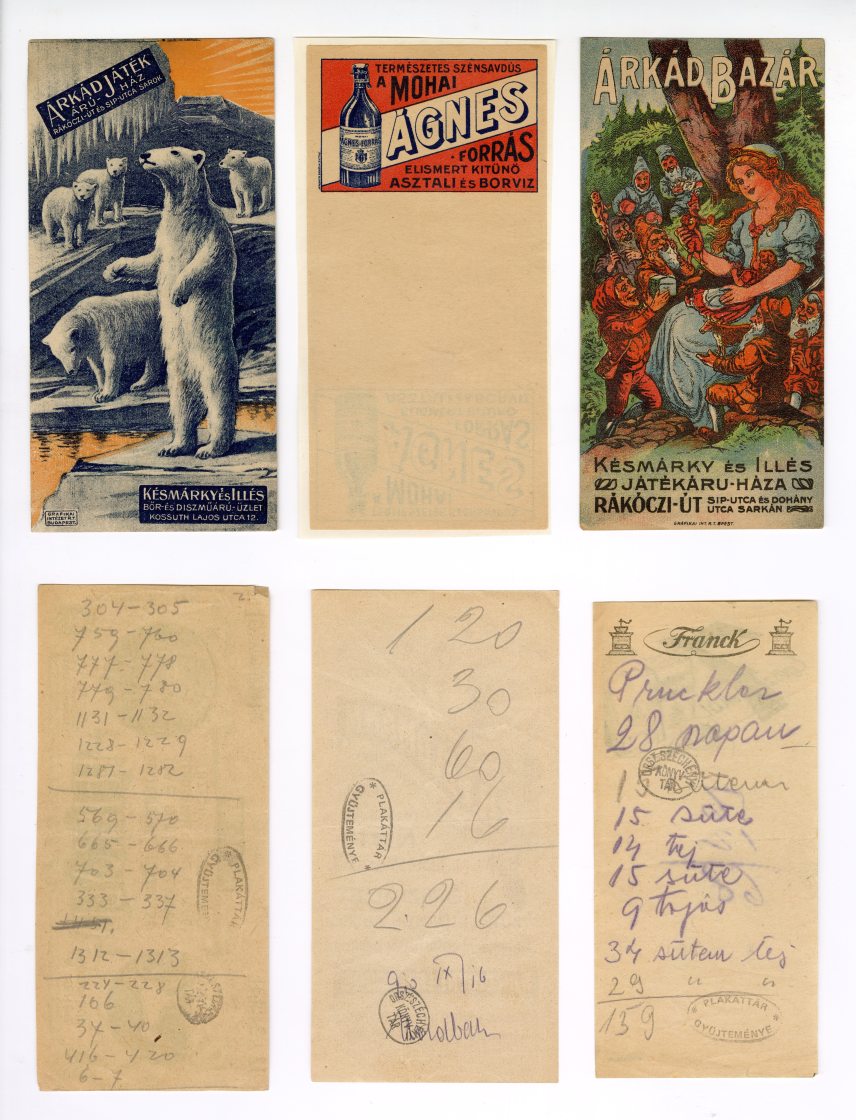 ÁRKÁD JÁTÉK
ÁRÚ-HÁZ
RÁKÓCZI-ÚT ÉS SIP-UTCA SAROK
KÉSMÁRKY ÉS ILLÉS
BŐR-ÉS DISZMŰÁRÚ-ÜZLET
KOSSUTH LAJOS UTCA 12.
GRAFIKAI
INTÉZET R.T.
BUDAPEST.
TERMÉSZETES SZÉNSAVDÚS
A MOHAI
ÁGNES
FORRÁS
ELISMERT KITÜNŐ
ASZTALI ÉS BORVIZ
ÁGNES-FORRÁS
ÁRKÁD BAZÁR
KÉSMÁRKY ÉS ILLÉS
JÁTÉKÁRU-HÁZA
RÁKÓCZI-ÚT SIP-UTCA ÉS DOHÁNY
UTCA SARKÁN
GRAFIKAI INT. R.T. BPEST.
2.
304-305
759-760
777-778
779-780
1131-1132
1228-1229
1281-1282
569-570
665-666
703-704
333-337
1312-1313
224-228
106
34-40
416-420
6-7
PLAKÁTTÁR
GYÜJTEMÉNYE
120
30
60
16
226
PLAKÁTTÁR
GYÜJTEMÉNYE
IX/16
ORSZ. SZÉCHÉNYI
KÖNYV
TÁR
Franck
28
ORSZ. SZÉCHÉNYI
KÖNYV
TÁR
15 süte
14 tej
15 süte
9 tojás
34 sütem tej
29 " "
159
PLAKÁTTÁR
GYÜJTEMÉNYE